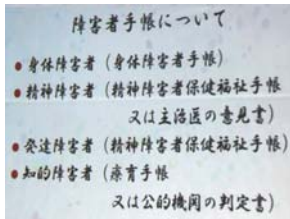 障害者手帳について
●身体障害者（身体障害者手帳）
●精神障害者（精神障害者保健福祉手帳
又は主治医の意見書）
●発達障害者（精神障害者保健福祉手帳）
●知的障害者（療育手帳
又は公的機関の判定書）